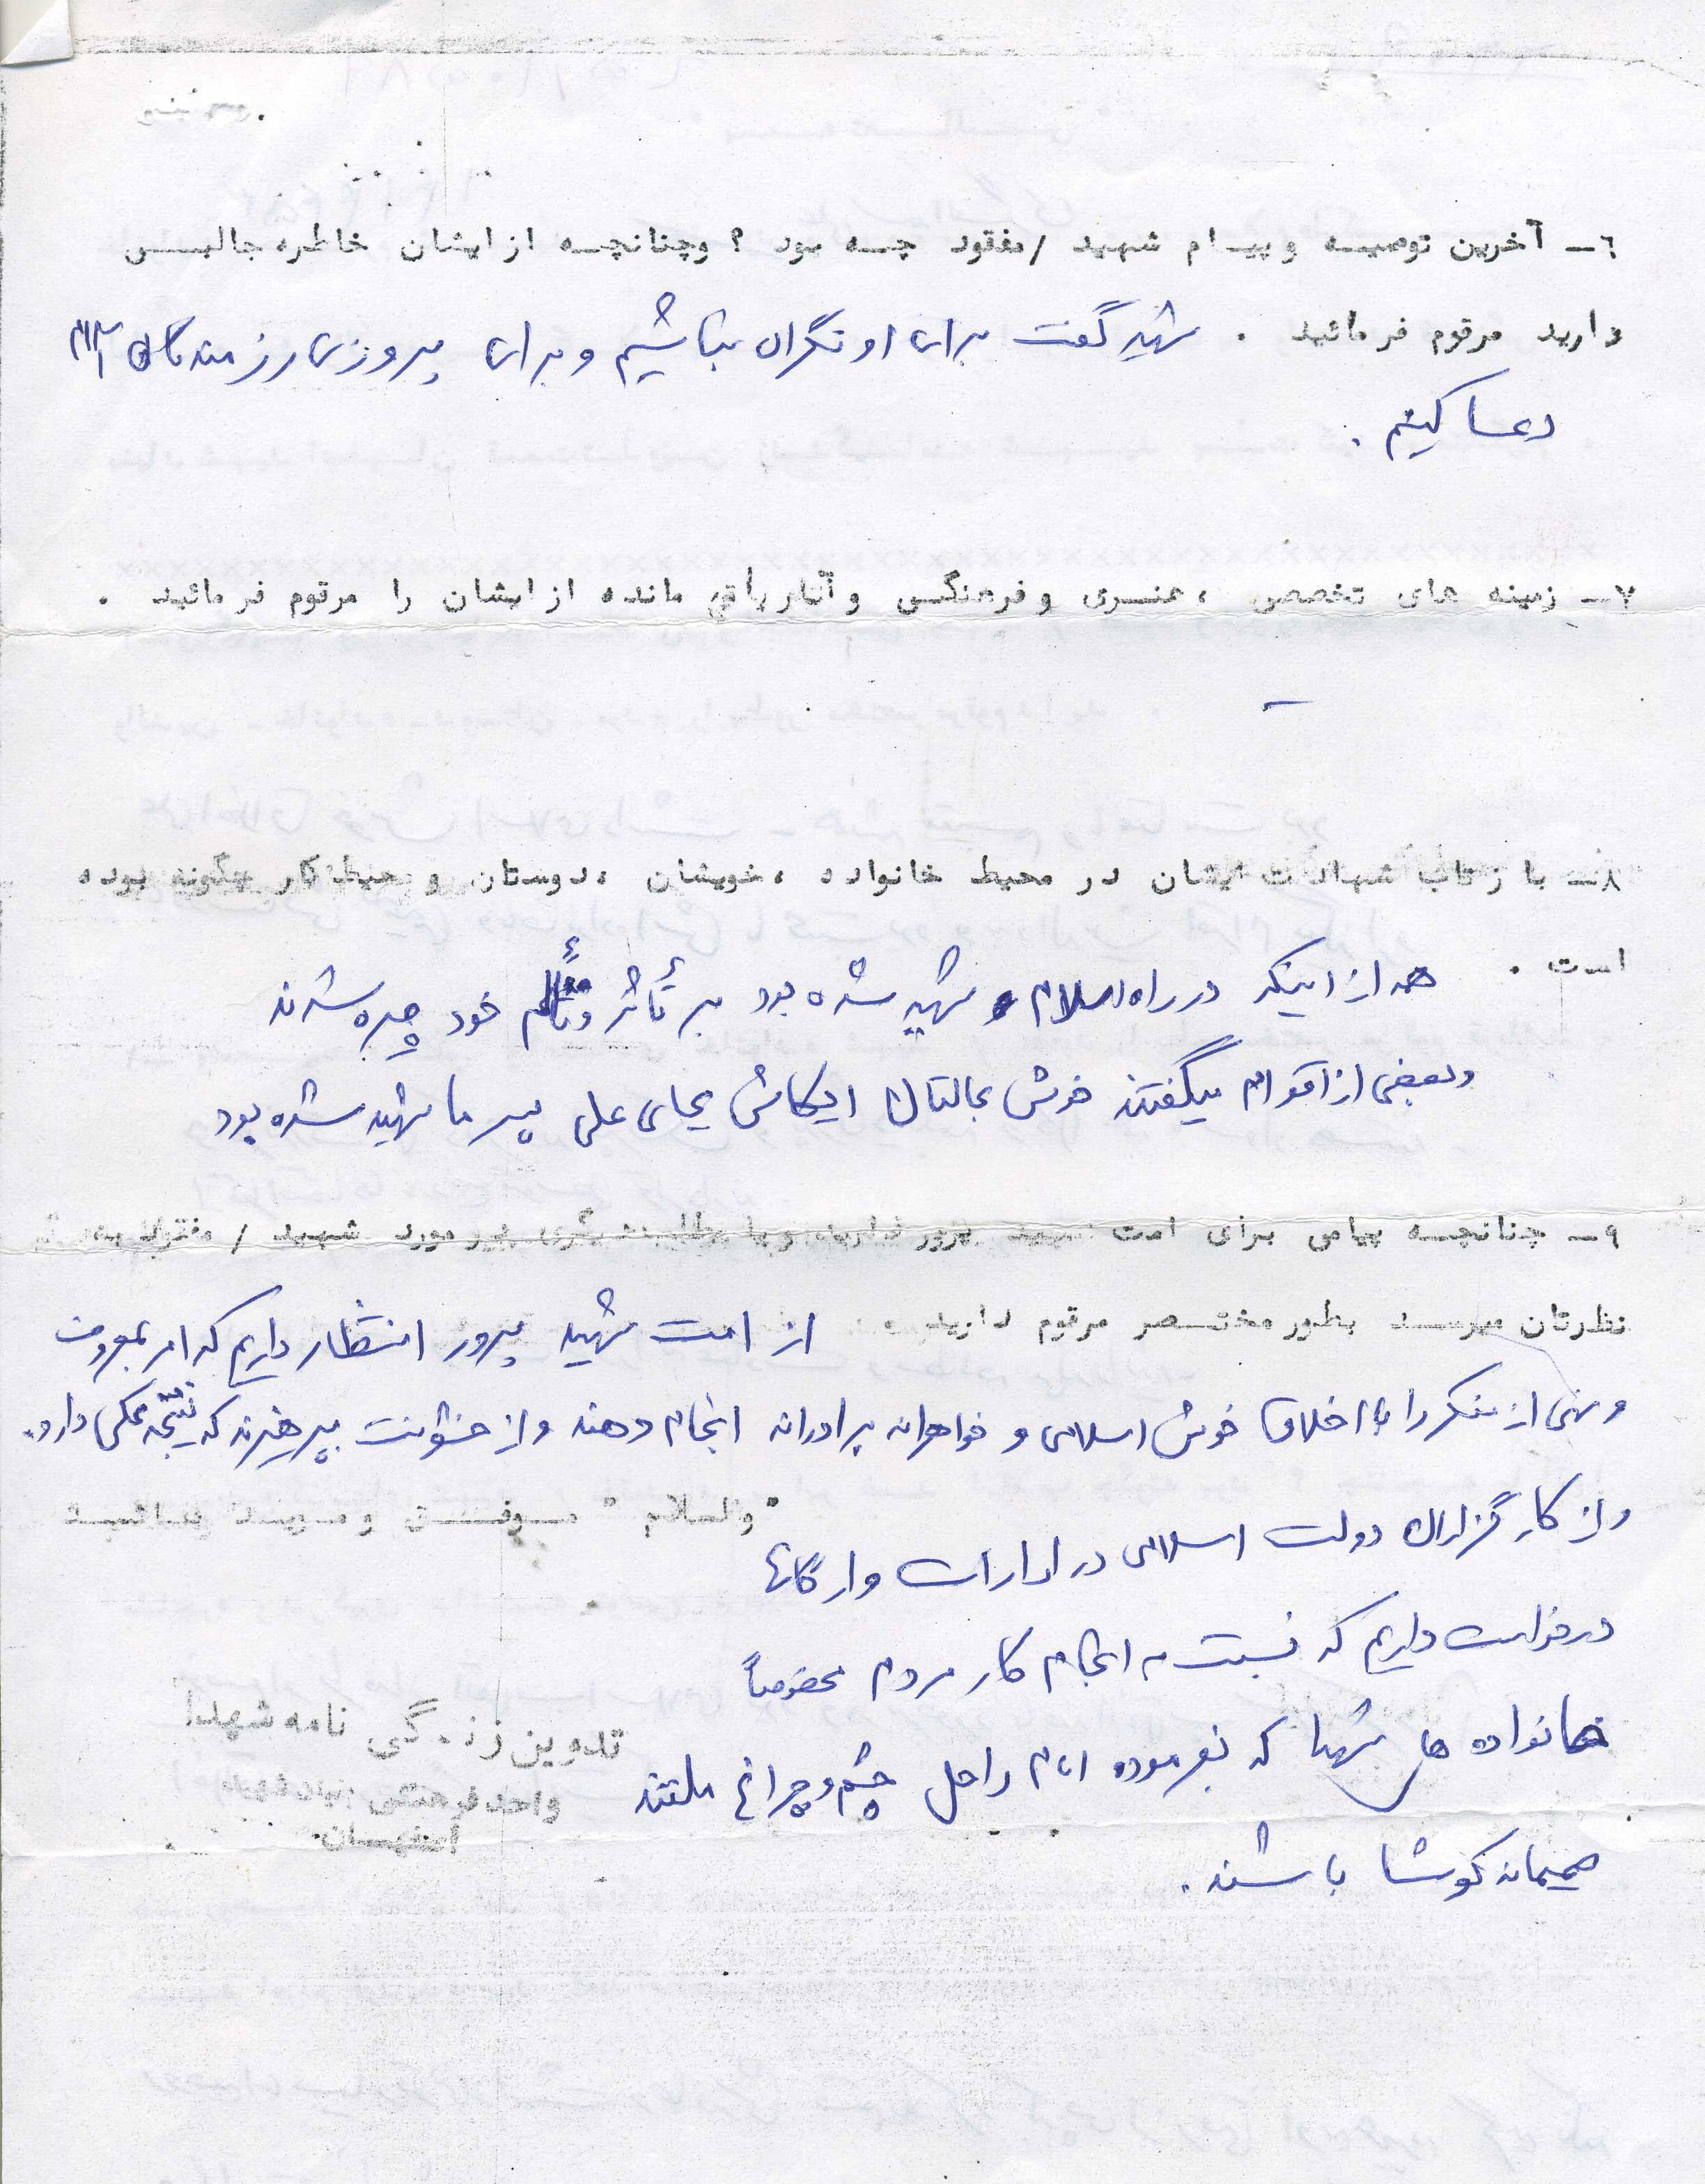 ۶ـ آخرین توصیه و پیام شهید / مفقود چه بود ؟ وچنانچه از ایشان خاطره جالبی
دارید مرقوم فرمائید . شهید گفت برای او نگران نباشیم و برای پیروزی رزمندگان
دعا کنیم .
۷ـ زمینه های تخصصی ، هنری و فرهنگی و آثار باقی مانده از ایشان را مرقوم فرمائید .
ـ
۸ـ بازتاب شهادت ایشان در محیط خانواده ، خویشان ، دوستان و محیط کار چگونه بوده
است . همه از اینکه در راه اسلام شهید شده بود بر تأثر و تألم خود چیره شدند
و بعضی از اقوام میگفتند خوش بحالتان ایکاش بجای علی پسر ما شهید شده بود
۹ـ چنانچه پیامی برای امت شهید پرور دارید و یا مطلب دیگری در مورد شهید / مفقود به
نظرتان میرسد بطور مختصر مرقوم دارید . از امت شهید پرور انتظار داریم که امر بمعروف
و نهی از منکر را با اخلاق خوش اسلامی و خواهرانه برادرانه انجام دهند و از خشونت بپرهیزند که نتیجه عکس دارد.
" والسلام " موفق و موید باشید
و از کارگزاران دولت اسلامی در ادارات و ارگانها
درخواست داریم که نسبت به انجام کار مردم مخصوصاً
خانواده های شهدا که بفرموده امام راحل چشم و چراغ ملتند
صمیمانه کوشا باشند .
تدوین زندگی نامه شهدا
واحد فرهنگی بنیاد شهید
اصفهان